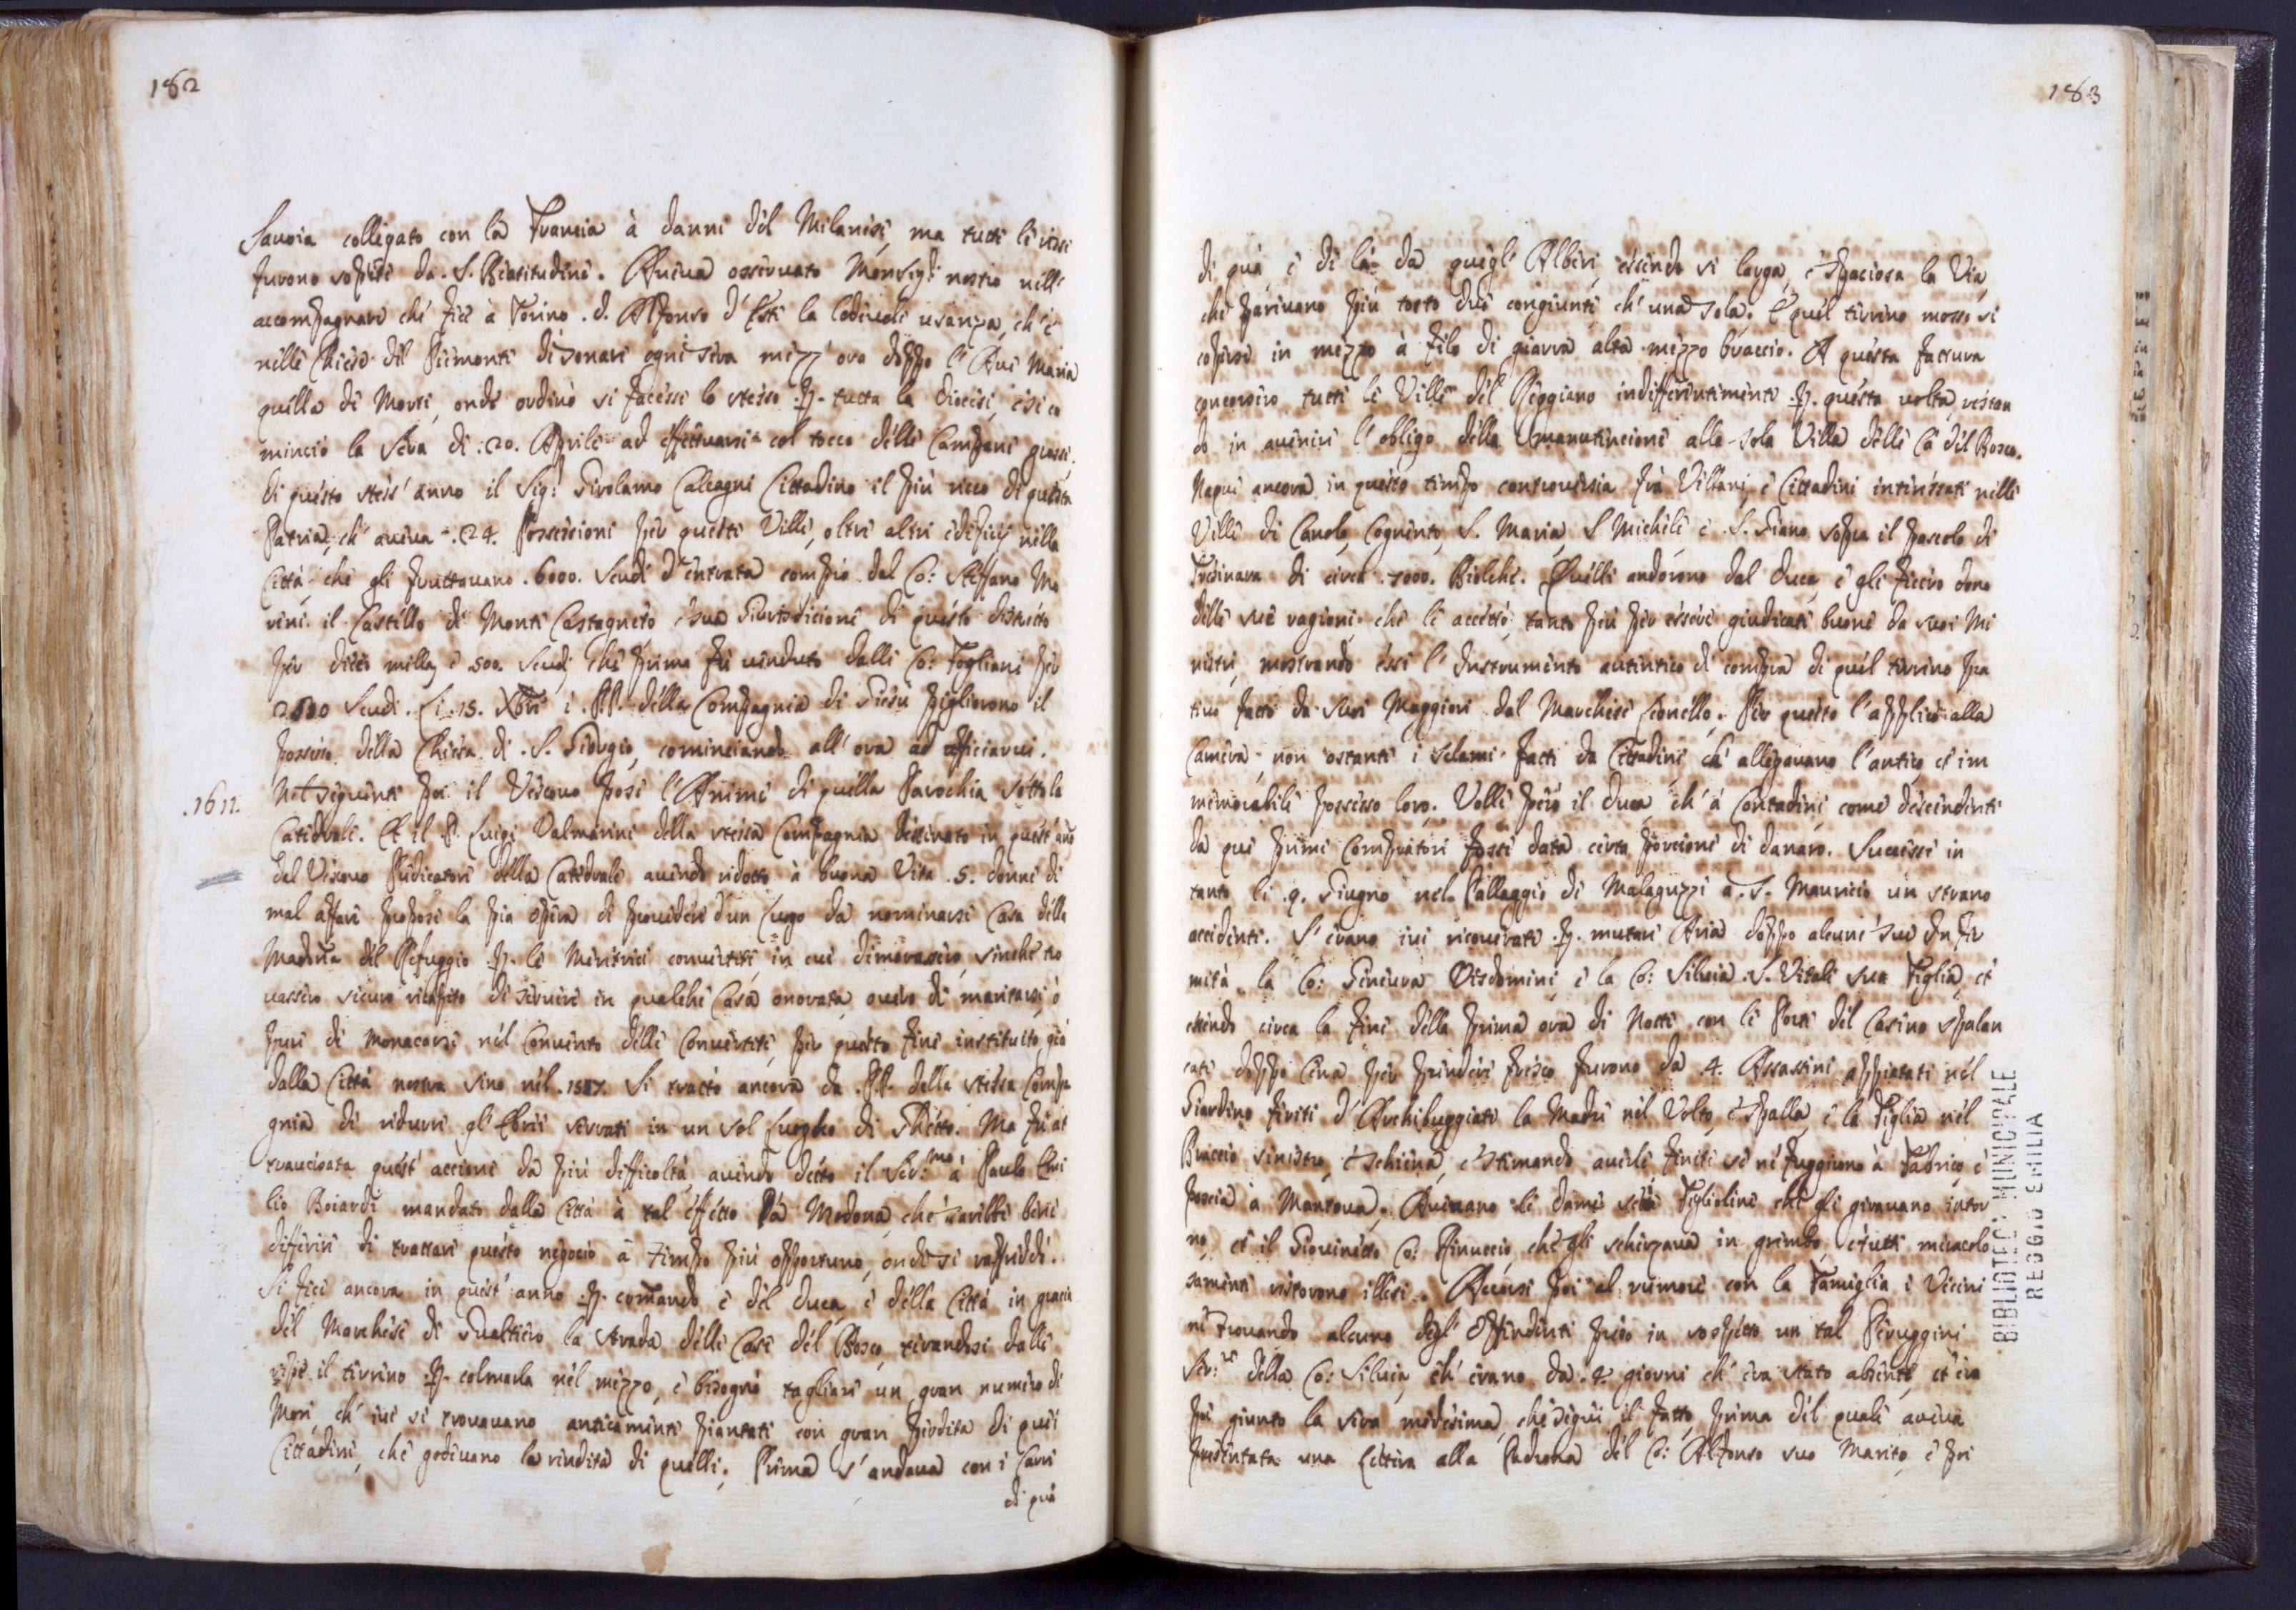 182
Savoia collegato con la Francia à danni del Milanese, ma tutti
furono sopiti da S. Beatitudine. Aveva osservato Monsig.r nostro nelle
accompagnare che fece à Torino d. Alfonso d'Este la lodevole usanza, ch'è
nelle Chiese del Piemonte di sonare ogni sera mezz'ora doppo l'Ave Maria
quella de Morti, onde ordinò si facesse lo stesso p. tutta la Diocesi, e si co
minciò la Sera di .20. Aprile ad effettuarsi col tocco delle Campane grosse.
Di questo stess'anno il Sig: Girolamo Calcagni Cittadino il più ricco di questa
Patria, ch'aveva .24. Possessioni per queste Ville, oltre altri edificij nella
Città che gli fruttavano .6000. Scudi d'entrata comprò dal Co: Steffano Mo
rini il Castello di Monte Castagneto e sua Giurisdicione di questo distretto
per dieci milla, e 500. Scudi, che prima fù venduto dalli Co: Fogliani per
2500 Scudi. Li .15. Xbre i PP. della Compagnia di Giesù pigliorono il
possesso della Chiesa di .S. Giorgio, cominciando all'ora ad officiarvi.
.1611.
Nel seguente poi il Vescovo pose l'Anime di quella Parochia sotto la
Catedrale. Et il P. Luigi Valmarini della stessa Compagnia destinato in quest'año
dal Vescovo Predicatore della Catedrale avendo ridotte à buona Vita .5. donne di
mal affare propose la pia opera di provedere d'un luogo da nominarsi Casa della
Madoña del Refuggio p. le Meretrici convertite, in cui dimorassero, sinche tro
vassero sicuro ricapito di servire in qualche Casa onorata, overo di maritarsi, ò
pure di Monacarsi nel Convento delle Convertite, per questo fine instituito già
dalla Città nostra sino nel .1587. Si trattò ancora da PP. della stessa Compa
gnia di ridurre gl'Ebrei serrati in un sol Luogho di Ghetto. Ma fù at
traversata quest'accione da più difficoltà, avendo detto il Ser:mo à Paulo Emi
lio Boiardi mandato dalla Città à tal effetto da Modona, che sarebbe bene
differire di trattare questo negocio à tempo più opportuno, onde si raffreddò.
Si fece ancora in quest'anno p. comando e del Duca, e della Città in gracia
del Marchese di Gualtiero la strada delle Case del Bosco, tirandosi dalle
ripe il terreno p. colmarla nel mezzo, e bisognò tagliare un gran numero di
Mori, ch'ivi si trovavano anticamente piantati con gran perdita di quei
Cittadini, che godevano la rendita di quelli. Prima s'andava con i Carri
di quà
183
di quà e di là da quegl'Alberi, essendo si larga, e spaciosa la Via,
che parevano più tosto due congiunte, ch'una sola. E quel terreno mosso si
coperse in mezzo à filo di giarra alta mezzo braccio. A questa fattura
concorsero tutte le Ville del Reggiano indifferentemente p. questa volta, restan
do in avenire l'obligo della manutencione alla sola Villa delle Cà del Bosco.
Naque ancora in questo tempo controversia frà Villani, e Cittadini interessati nelle
Ville di Canolo, Cognento, S. Maria, S. Michele e .S. Giano sopra il pascolo di
Tresinara di circa .7000. Biolche. Quelli andorono dal Duca, e gli fecero dono
delle sue ragioni, che le accettò, tanto più per essere giudicate buone da suoi Mi
nistri, mostrando essi l'Instrumento autentico di compra di quel terreno pra
tivo fatto da suoi Maggiori dal Marchese Leonello. Per questo l'applicò alla
Camera, non ostanti i sclami fatti da Cittadini, ch'allegavano l'antico, et im
memorabile possesso loro. Volle però il Duca, ch'à Contadini, come descendenti
da quei primi Compratori fosse data certa porcione di danaro. Successe in
tanto li .9. Giugno nel Pallaggio di Malaguzzi à .S. Mauricio un strano
accidente. S'erano ivi ricoverate p. mutare Aria doppo alcune sue Infir
mità la Co: Ginevra Visdomini, e la Co: Silvia S. Vitali sua Figlia, et
essendo circa la fine della prima ora di Notte con le Porte del Casino spalan
cate doppo Cena per prendere fresco furono da 4. Assassini appiatati nel
Giardino ferite d'Archibuggiate la Madre nel Volto, e Spalla, e la Figlia nel
Braccio sinistro, e schiena, e stimando averle ferite se ne fuggirono à Fabrico, e
poscia à Mantova. Avevano le dame Figlioline che gli giravano intor
no, et il Giovinetto Co: Rinuccio, che gli scherzava in grembo, e tutti miracolo
samente restorono illesi. Accorse poi al rumore con la Famiglia i Vicini
ne trovando alcuno degl'Offendenti prese in sospetto un tal Peruggini
Ser:re della Co: Silvia, ch'erano da giorni ch'era stato absente, et era
poi giunto la sera medesima, che seguì il fatto, prima del quale aveva
presentata una Lettera alla Padrona del Co: Alfonso suo Marito, e poi
BIBLIOTECA MUNICIPALE
REGGIO EMILIA